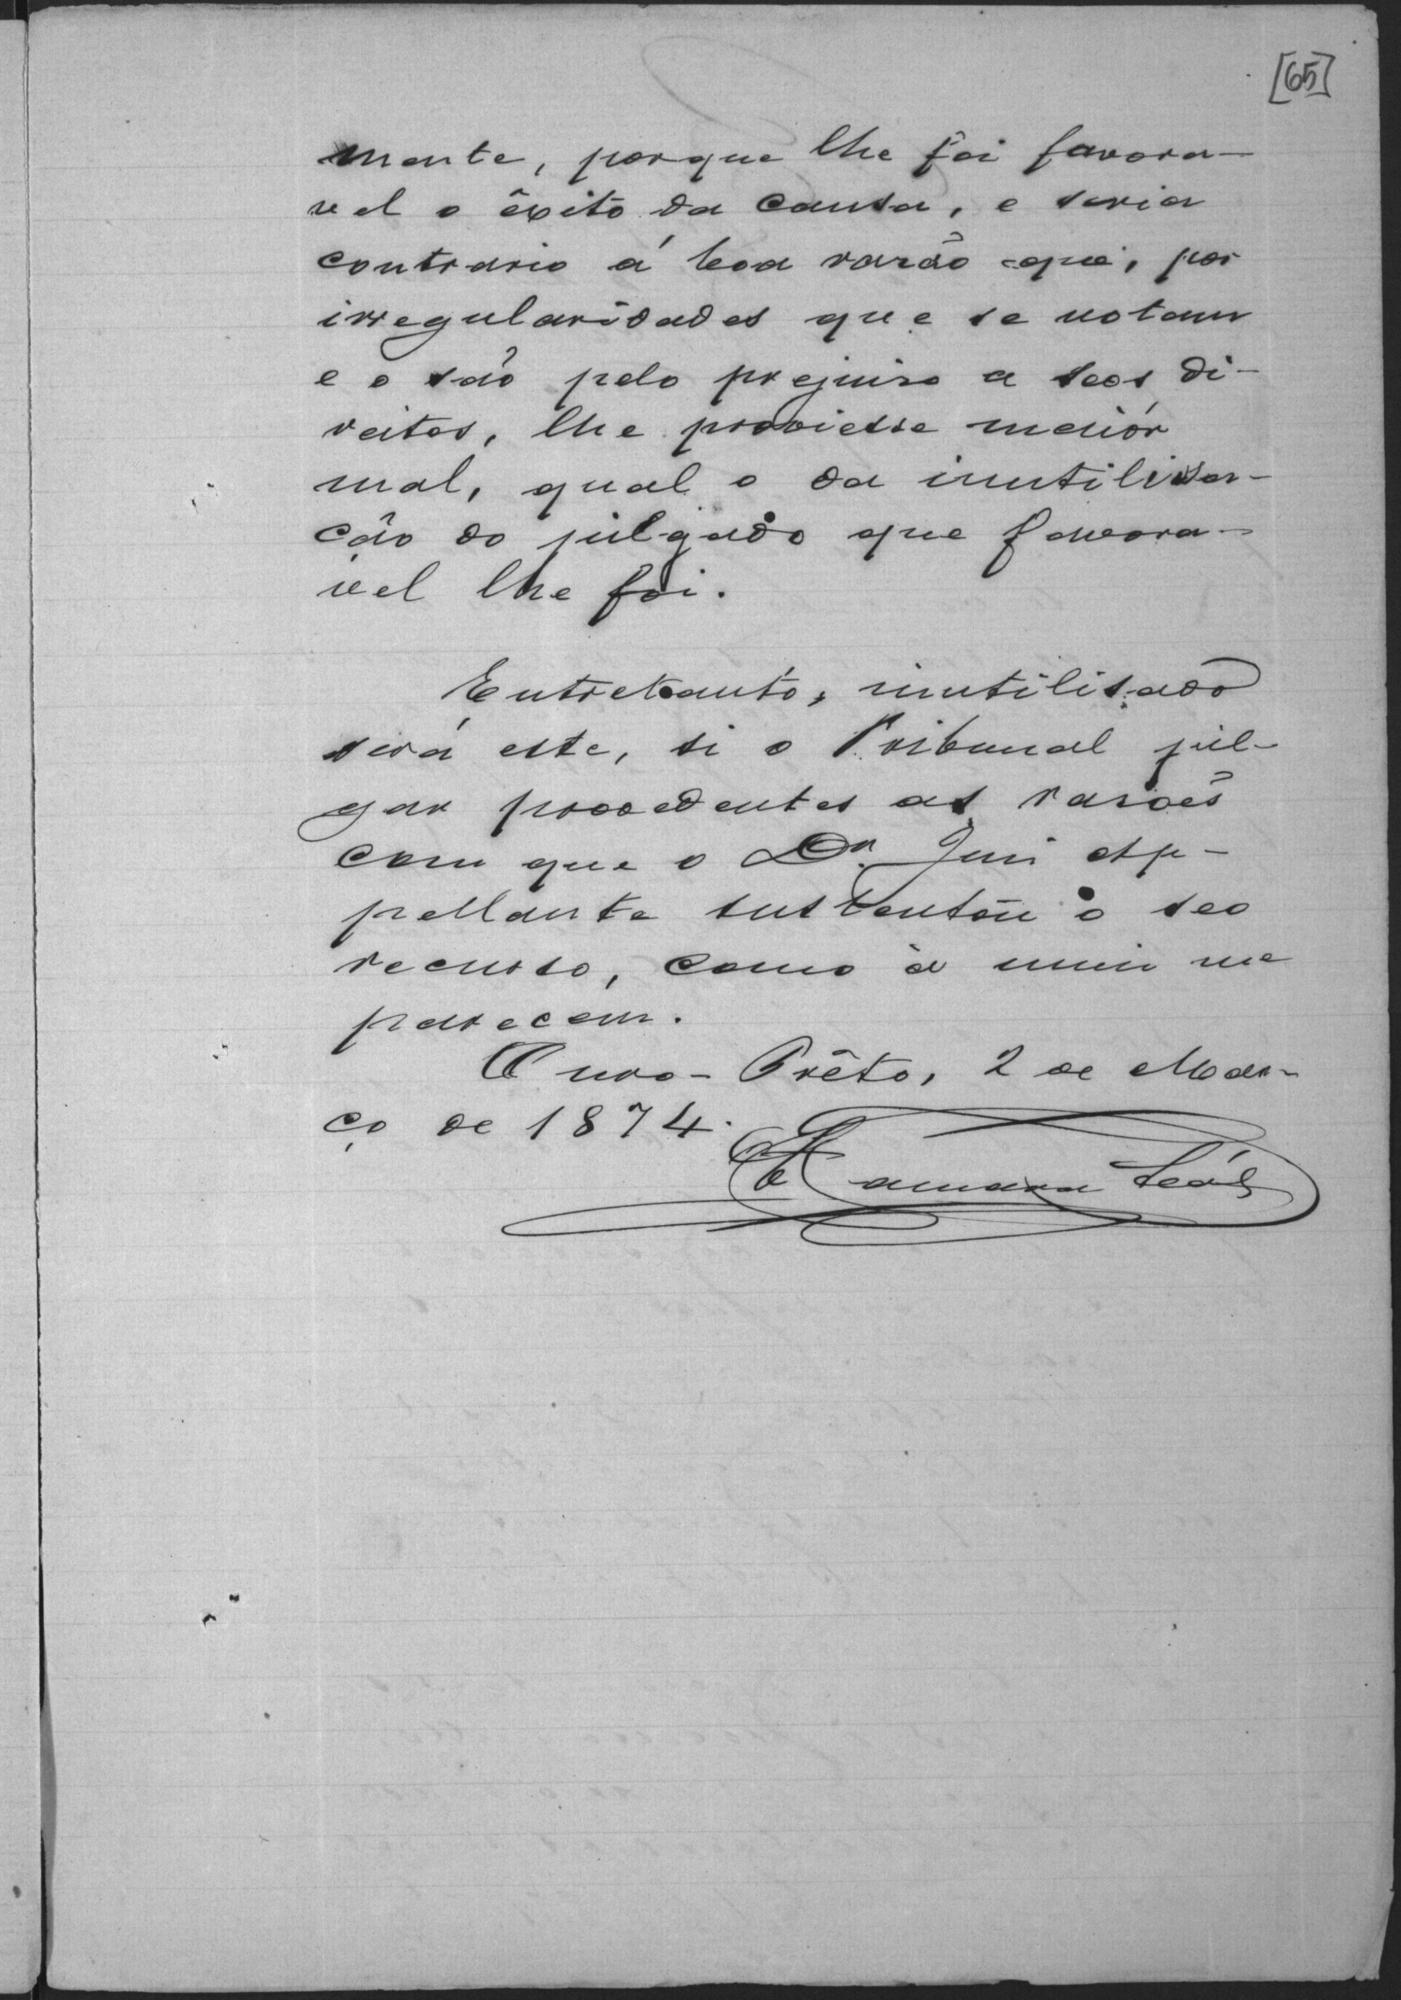 [65]
mente, porque lhe foi favora-
vel o êxito da causa, e seria
contrario á boa rasão que, por
irregularidades que se notam
e o são pelo prejuiso a seos di-
reitos, lhe proviesse meiór
mal, qual o da inutilisa-
ção do julgado que favora-
vel lhe foi.
Entretanto, inutilisado
será este, si o Tribunal jul-
gar procedentes as rasões
com que o Dr. Juis Ap-
pellante sustentou o seo
recurso, como à mim me
parecem.
Ouro-Prêto, 2 de Mar-
ço de 1874.
Camara Leál